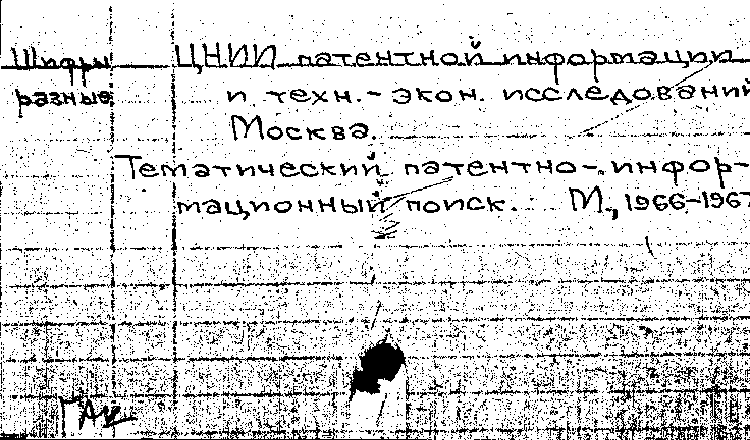 Шифры ЦНИИ патентной информации
разные и техн.-экон. исследований
Москва.
Тематический патентно-инфор-
мационный поиск. М., 1966-1967